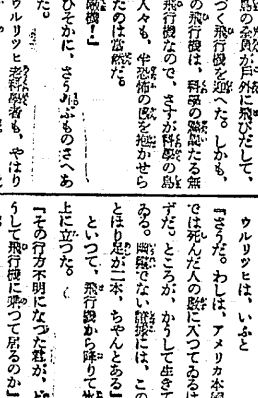 島の全員が戸外に飛びだして、
づく飛行機を迎へた。しかも、
の飛行機は、科學の驚異たる無
飛行機なので、さすが科學の島
人々も、半恐怖の感を抱かせら
たのは當然だ。
敵機！』
ひそかに、さう叫ぶものさへあ
た。
ウルリツヒ老科學者も、やはり
ウルリツヒは、いふと
『さうだ。わしは、アメリカ本國
では死んだ人の數に入つてゐるは
ずだ。ところが、かうして生きて
ゐる。幽靈でない證據には、この
とほり足が二本、ちやんとある』
といつて、飛行機から降りて
上に立つた。
『その行方不明になつた君が、ど
うして飛行機に乘つて居るのか』